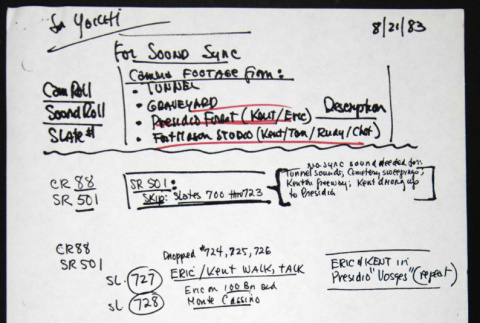 8/21/83
For SOUND SYNC
CAMERA FOOTAGE from:
Cam Roll
Sound Roll
SLATE #
• TUNNEL
• GRAVEYARD
• PRESIDIO Forest (KENT/ERIC)
• Fort Mason STUDIO (Kent/Tom/Rudy/Chet)
Description
CR 88
SR 501
SR 501:
SKIP: Slates 700 thru 723
No SYNC sound needed for:
Tunnel sounds; Cemetery sweepings;
Kent on freeway; Kent driving up
to Presidio
CR 88
SR 501
Dropped #724, 725, 726
SL. 727
ERIC/Kent WALK, TALK
SL 728
Eric on 100 Bn and
Monte Cassino
ERIC & KENT in
Presidio "Vosges" (repeat)